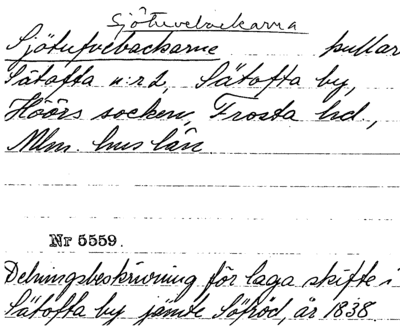 Sjötuvebackarna
Sjötufvebackarne kullar
Sätofta n:r 2, Sätofta by,
Höörs socken, Frosta hd.,
Mlm. hus län
Nr 5559.
Delningsbeskrivning för laga skifte i
Sätofta by jämte Söfröd, år 1838.